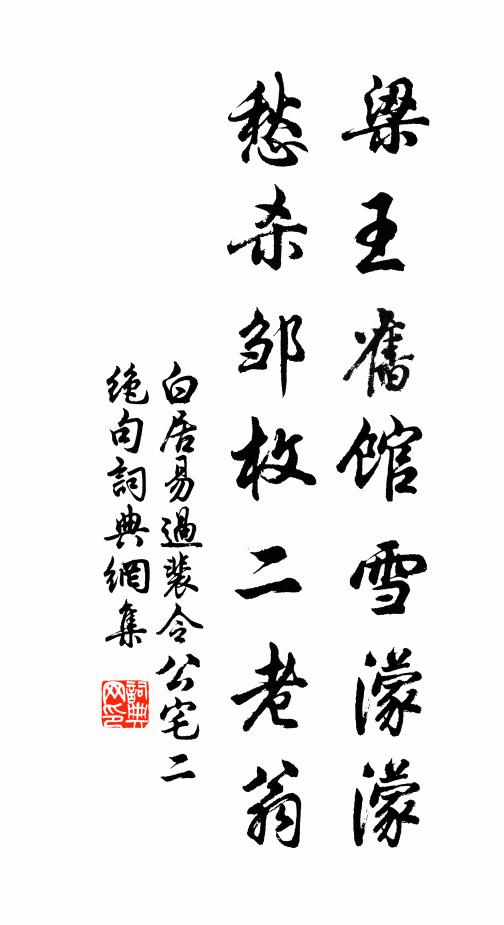 梁王舊馆雪濛濛
愁杀邹枚二老翁
白居易過裴令公宅二
绝句詞典網集
詞典
网印